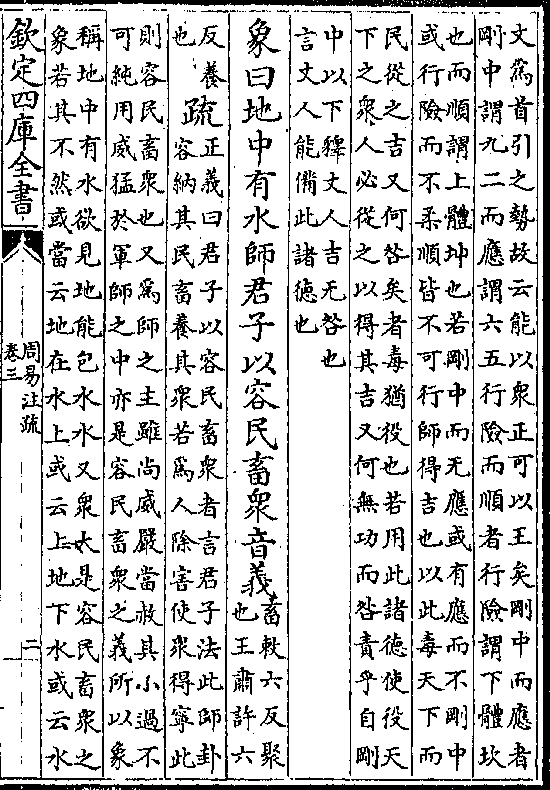 文為首引之勢故云能以衆正可以王矣剛中而應者
剛中謂九二而應謂六五行險而順者行險謂下體坎
也而順謂上體坤也若剛中而无應或有應而不剛中
或行險而不柔順皆不可行師得吉也以此毒天下而
民從之吉又何咎矣者毒猶役也若用此諸德使役天
下之衆人必從之以得其吉又何無功而咎責乎自剛
中以下釋丈人吉无咎也
言丈人能備此諸德也
象曰地中有水師君子以容民畜衆音義
畜敕六反聚
也王肅許六
反養
也
疏
正義曰君子以容民畜衆者言君子法此師卦
容納其民畜養其衆若為人除害使衆得寧此
則容民畜衆也又為師之主雖尚威嚴當赦其小過不
可純用威猛於軍師之中亦是容民畜衆之義所以象
稱地中有水欲見地能包水水又衆大是容民畜衆之
象若其不然或當云地在水上或云上地下水或云水
欽定四庫全書
周易注疏
卷三
二